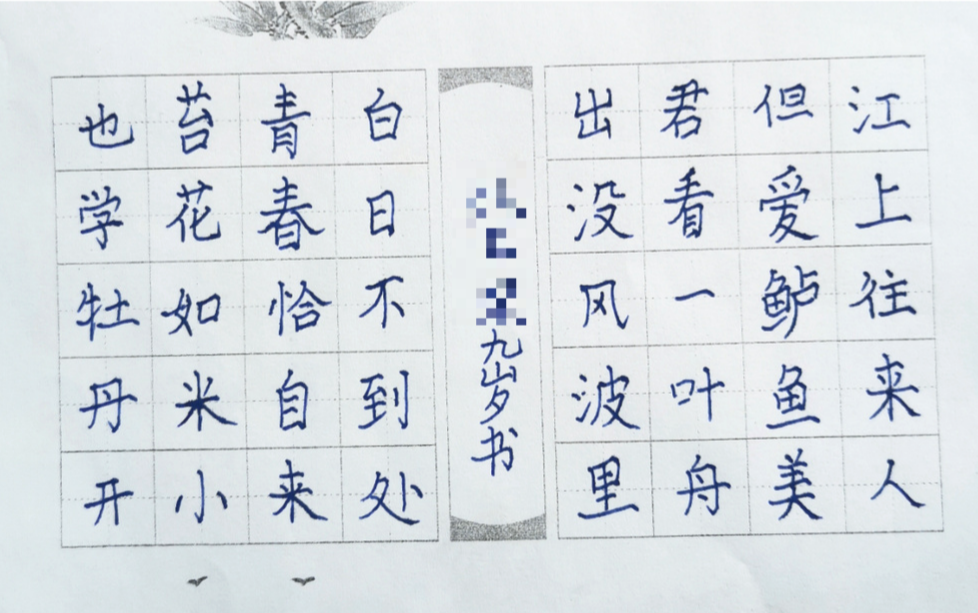 江上往来人
但爱鲈鱼美
君看一叶舟
出没风波里
九岁书
白日不到处
青春恰自来
苔花如米小
也学牡丹开